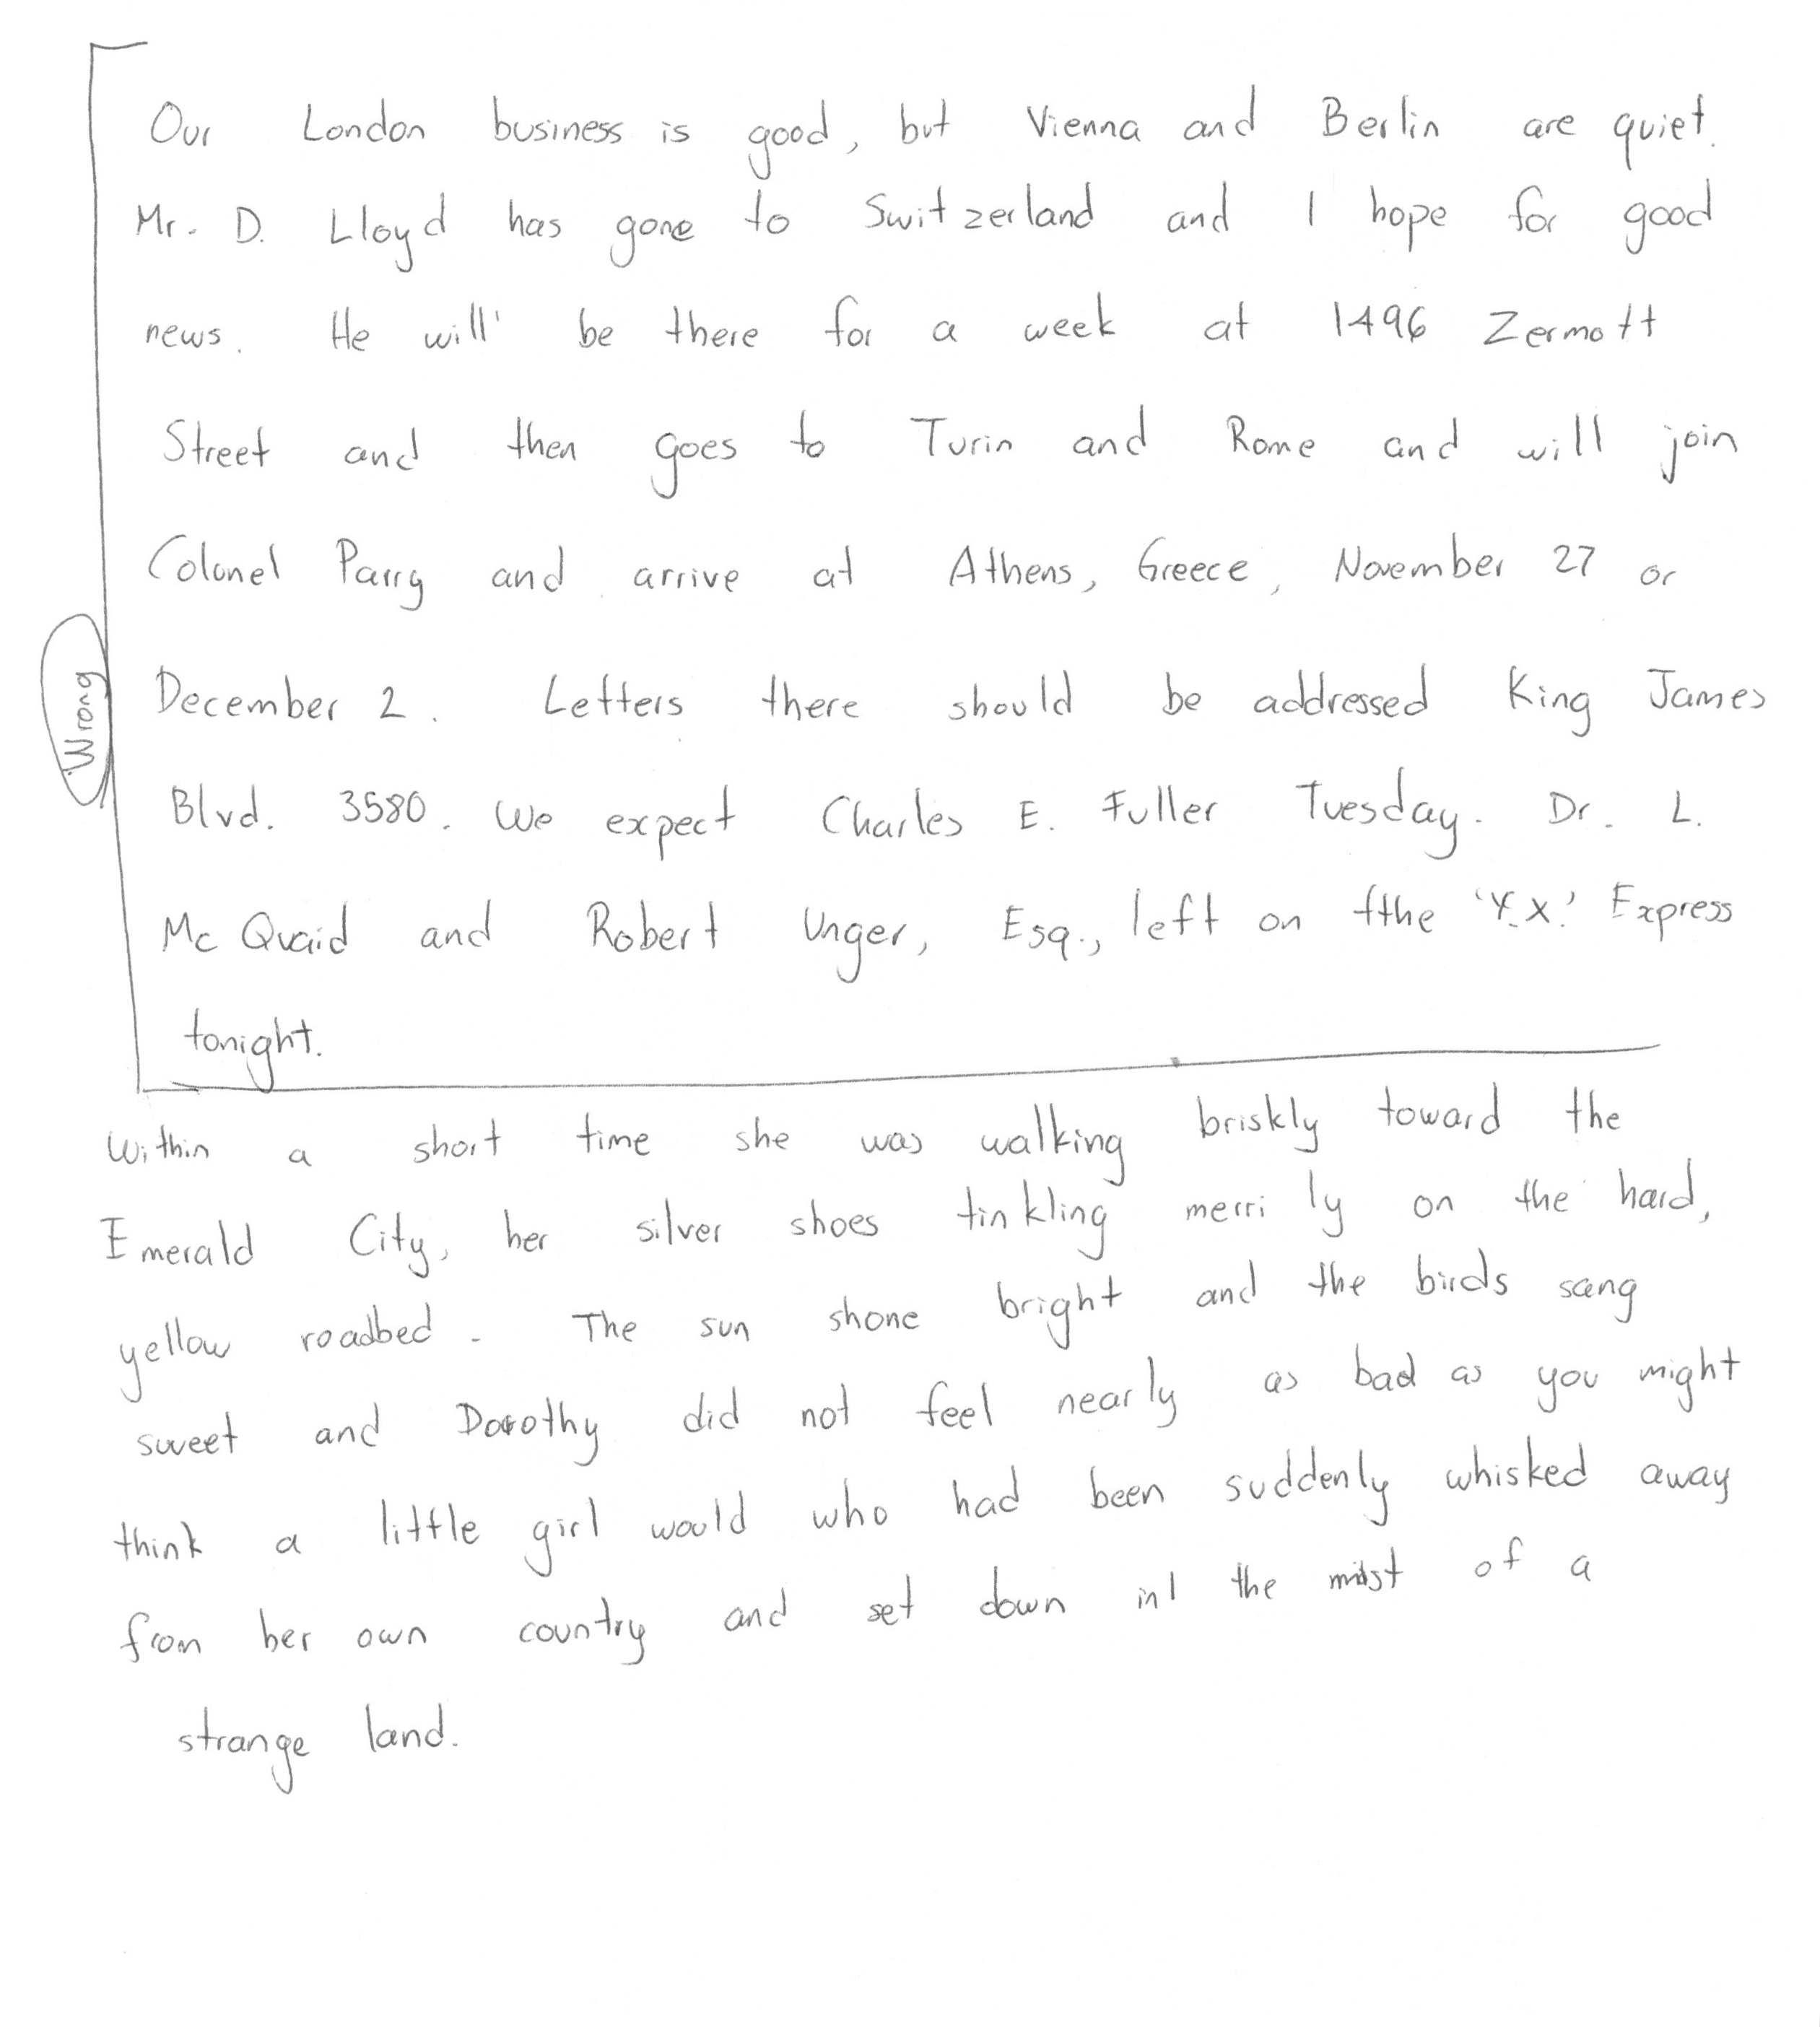 Our London business is good, but Vienna and Berlin are quiet.
Mr. D. Lloyd has gone to Switzerland and I hope for good
news. He will be there for a week at 1496 Zermott
Street and then goes to Turin and Rome and will join
Colonel Parry and arrive at Athens, Greece, November 27 or
December 2. Letters there should be addressed King James
Blvd. 3580. We expect Charles E. Fuller Tuesday. Dr. L.
Mc Quaid and Robert Unger, Esq., left on fthe 'Y.X.' Express
tonight.
Wrong
Within a short time she was walking briskly toward the
Emerald City, her silver shoes tinkling merrily on the hard,
yellow roadbed. The sun shone bright and the birds sang
sweet and Dorothy did not feel nearly as bad as you might
think a little girl would who had been suddenly whisked away
from her own country and set down in the midst of a
strange land.